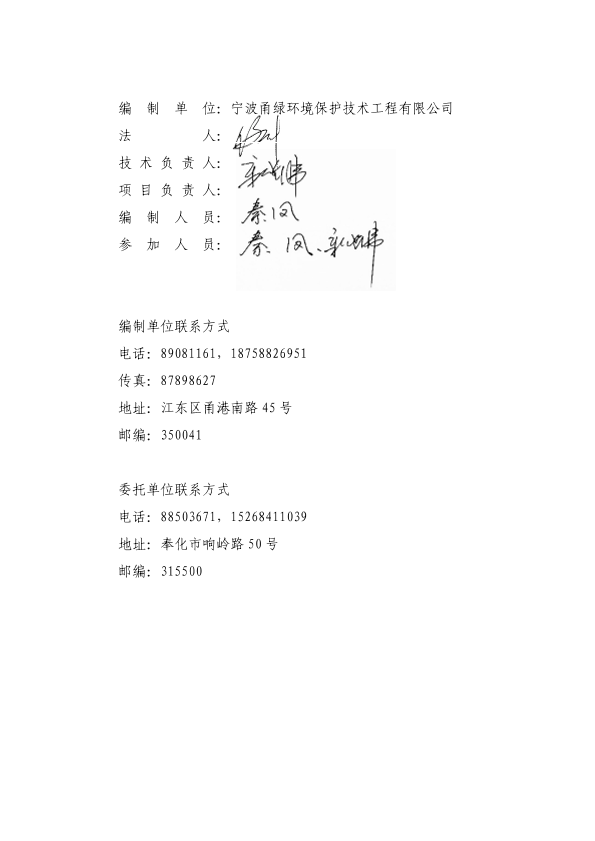 编制单位：宁波甬绿环境保护技术工程有限公司
法人：
技术负责人：
项目负责人：
编制人员：秦凤
参加人员：秦凤、
编制单位联系方式
电话：89081161，18758826951
传真：87898627
地址：江东区甬港南路 45 号
邮编：350041
委托单位联系方式
电话：88503671，15268411039
地址：奉化市响岭路 50 号
邮编：315500